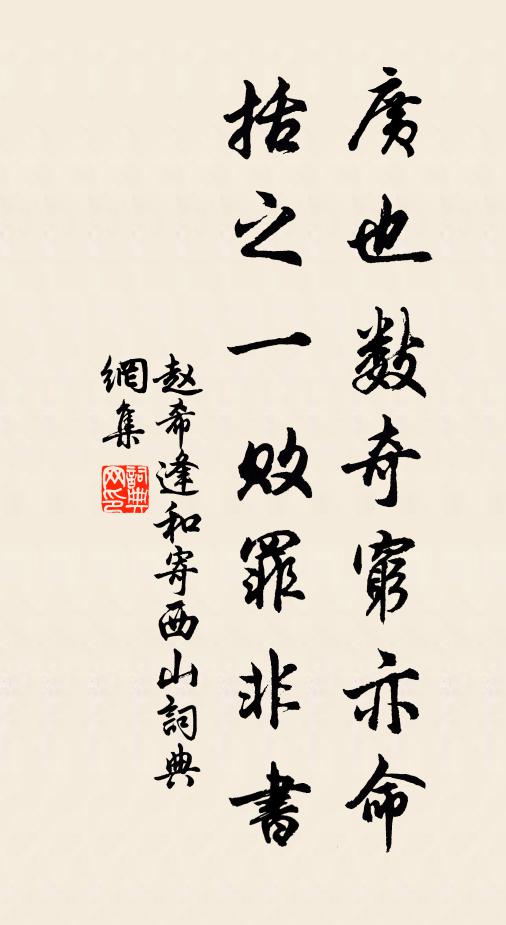 廣也数奇窮亦命
括之一敗罪非書
赵希逢和寄西山詞典
網集
詞典
网印